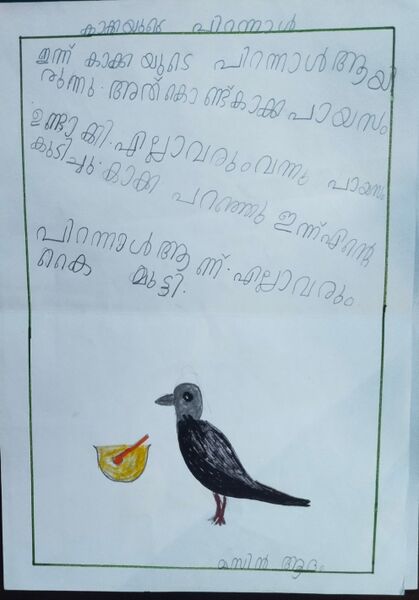 കാക്കയുടെ പിറന്നാൾ
ഇന്ന് കാക്ക യുടെ പിറന്നാൾ ആയി
രുന്നു. അത് കൊ ണ്ട് കാക്ക പായസം
ഉണ്ടാ ക്കി. എല്ലാവരും വന്നു പായസം
കുടിച്ചു. കാക്ക പറഞ്ഞു ഇന്ന് എന്റെ
പിറന്നാൾ ആ ണ്. എല്ലാവരും
കൈ മുട്ടി.